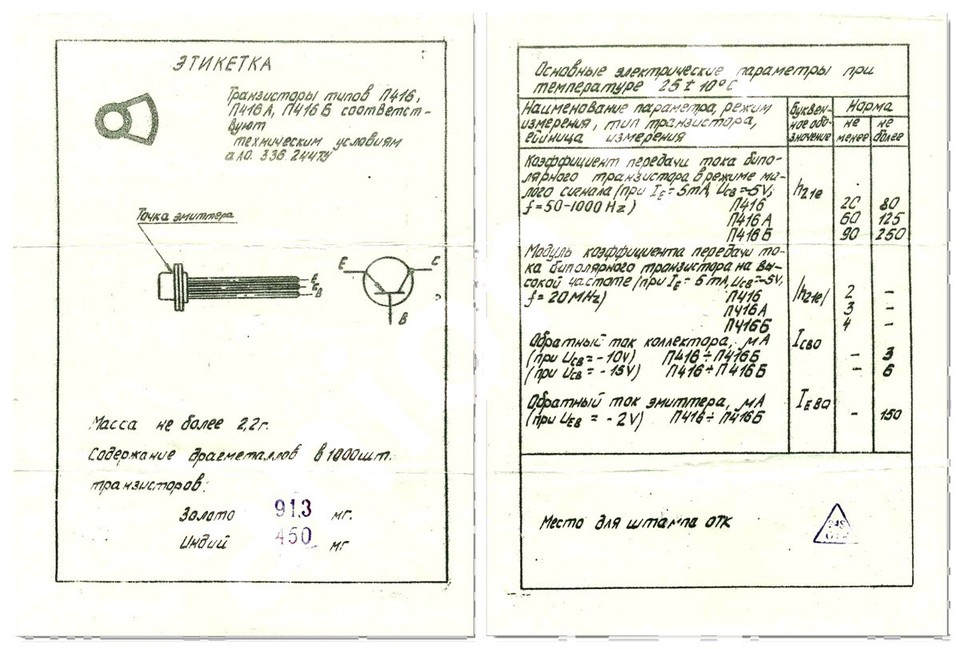 ЭТИКЕТКА
Транзисторы типов П416,
П416А, П416Б соответст-
вуют
техническим условиям
аА0. 336 244ТУ
Точка эмиттера
E
C
B
E
C
B
Масса не более 2,2г.
Содержание драгметаллов в 1000шт.
транзисторов:
Золото 91,3 мг.
Индий 450 мг
Основные электрические параметры при
температуре 25 ± 10°С
Наименование параметра, режим
измерения, тип транзистора,
единица измерения
Буквен-
ное обо-
значение
Норма
не
менее
не
более
Коэффициент передачи тока бипо-
лярного транзистора в режиме ма-
лого сигнала (при IE = 5mA, UCB = -5V,
f = 50-1000 Hz) П416 h21e 20 80
П416А 60 125
П416Б 90 250
Модуль коэффициента передачи то-
ка биполярного транзистора на вы-
сокой частоте (при IE = 5 mA, UCB = -5V,
f = 20 MHz) П416 |h21e| 2 -
П416А 3 -
П416Б 4 -
Обратный ток коллектора, мА ICBO
(при UCB = -10V) П416 ÷ П416Б - 3
(при UCB = -15V) П416 ÷ П416Б - 6
Обратный ток эмиттера, мА IEBO
(при UEB = -2V) П416 ÷ П416Б - 150
Место для штампа ОТК